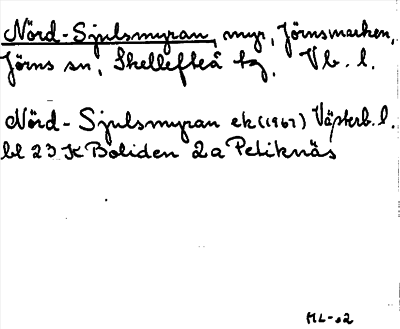 Nörd-Sjulsmyran, myr, Jörnsmarken,
Jörns sn, Skellefteå tg, Vb. l.
Nörd-Sjulsmyran ek (1967) Västerb. l.
bl 23 K Boliden 2a Petiknäs
ML-02